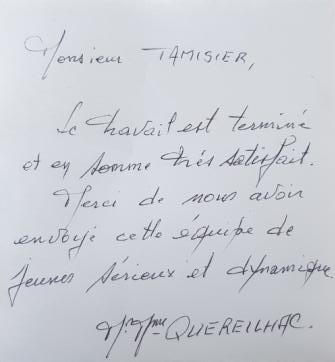 Monsieur TAMISIER,
Le travail est terminé
et en somme très satisfait.
Merci de nous avoir
envoyé cette équipe de
jeunes sérieux et dynamique.
Mr Mme QUEREILHAC.